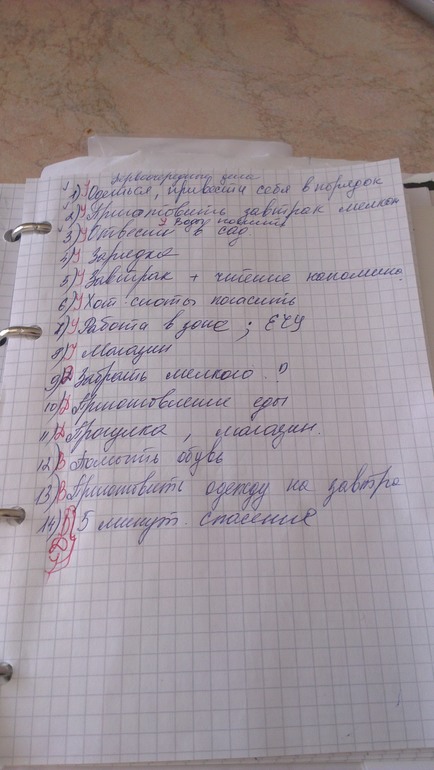 Первоочередные дела
1) У Одеться, привести себя в порядок
2) У Приготовить завтрак мелкому
У Воды попить
3) У Отвести в сад
4) У Зарядка
5) У Завтрак + чтение напомина.
6) У Хот споты погасить
7) У Работа в зоне ; ЕЧУ
8) У Магазин
9) Д Забрать мелкого ?
10) Д Приготовление еды
11) Д Прогулка, магазин.
12) В Помыть обувь
13) В Приготовить одежду на завтра
14) В 5 минут спасения
Д
У